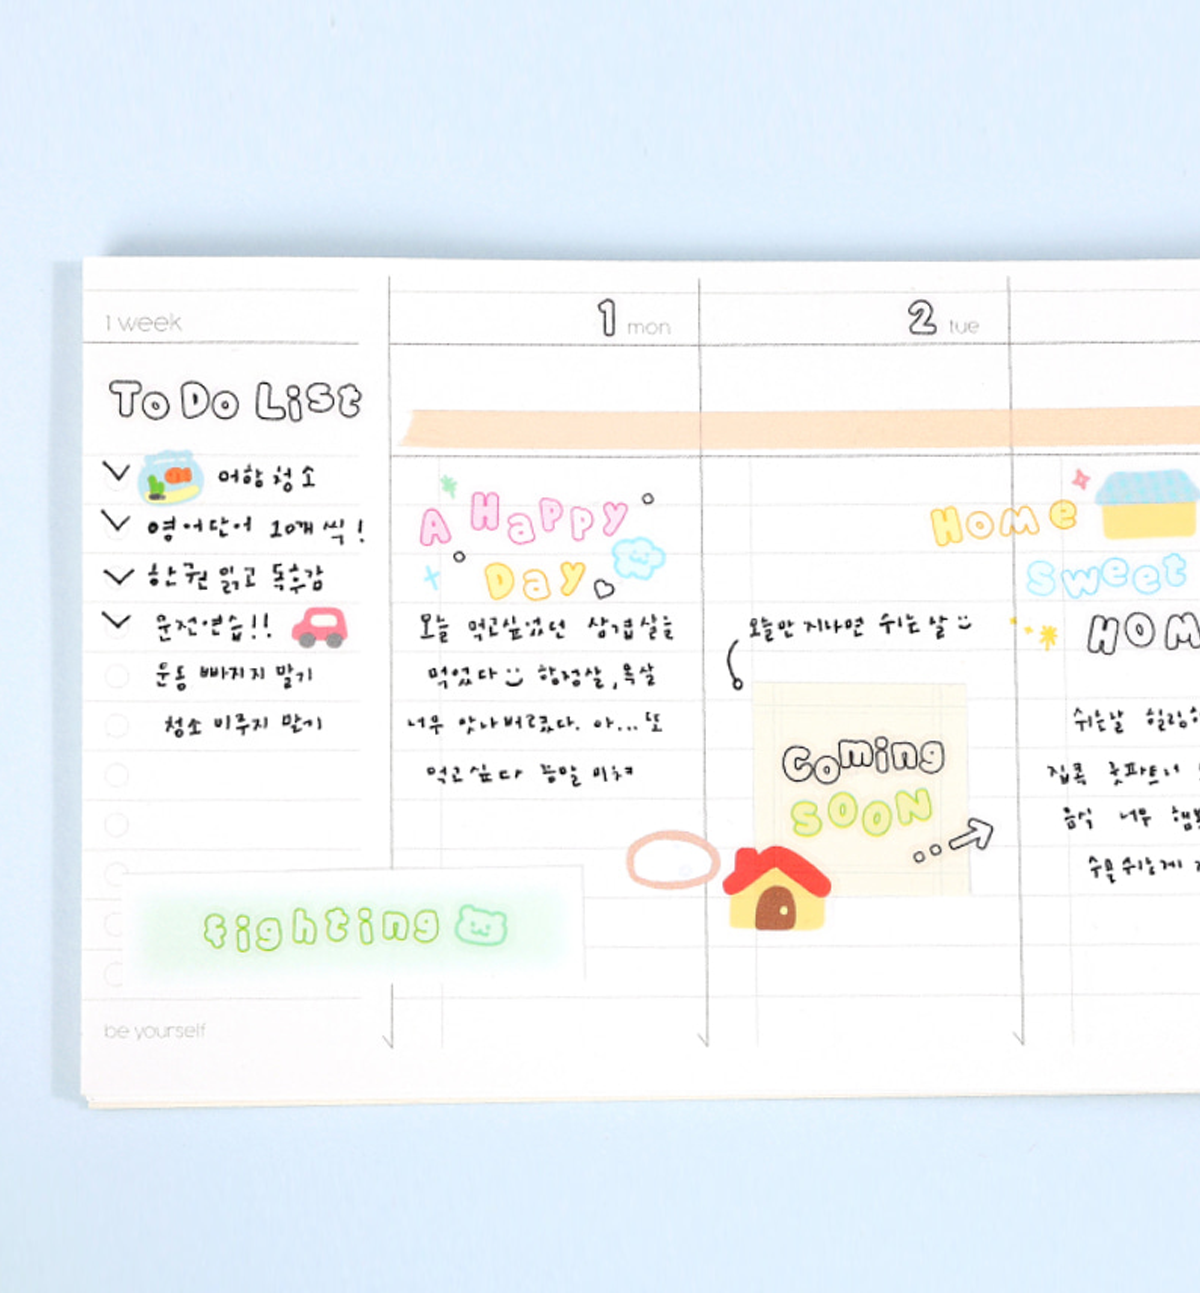 1 week
To Do List
어항 청소
영어단어 10개 씩!
한권 읽고 독후감
운전연습!!
운동 빠지지 말기
청소 미루지 말기
fighting
be yourself
1 mon
A Happy
Day
오늘 먹고싶었던 삼겹살을
먹었다 항정살, 목살
너무 맛나버렸다. 아... 또
먹고싶다 증말 미쳐
2 tue
오늘만 지나면 쉬는 날
Coming
SOON
Home
Sweet
HOM
쉬는날 힐링
집콕
음식 너무